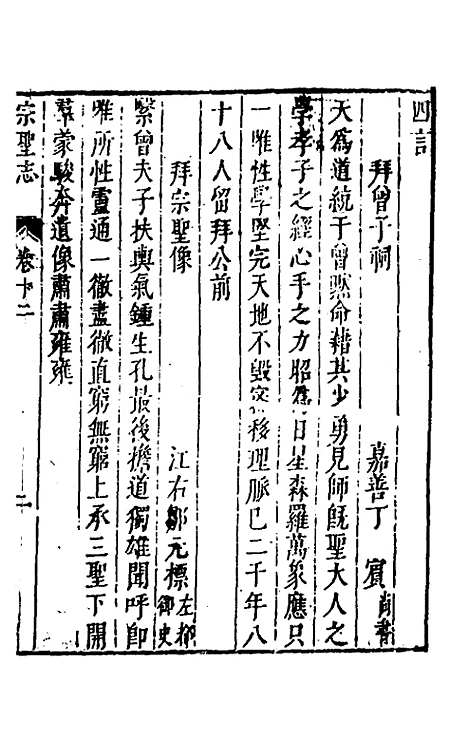 四言
拜曾子祠　嘉善丁賓尚書
天為道統于曾默命藉其少勇見師旣聖大人之
學孝子之經心手之力昭為日星森羅萬象應只
一唯性學堅完天地不毀移理脈已二千年八
十八人留拜公前
拜宗聖像　江右鄒元標左都御史
繄曾夫子扶輿氣鍾生孔最後擔道獨雄聞呼卽
唯所性靈通一徹盡徹直窮無窮上承三聖下開
羣蒙駿奔遺像肅肅雍雍
宗聖志　卷十二　二